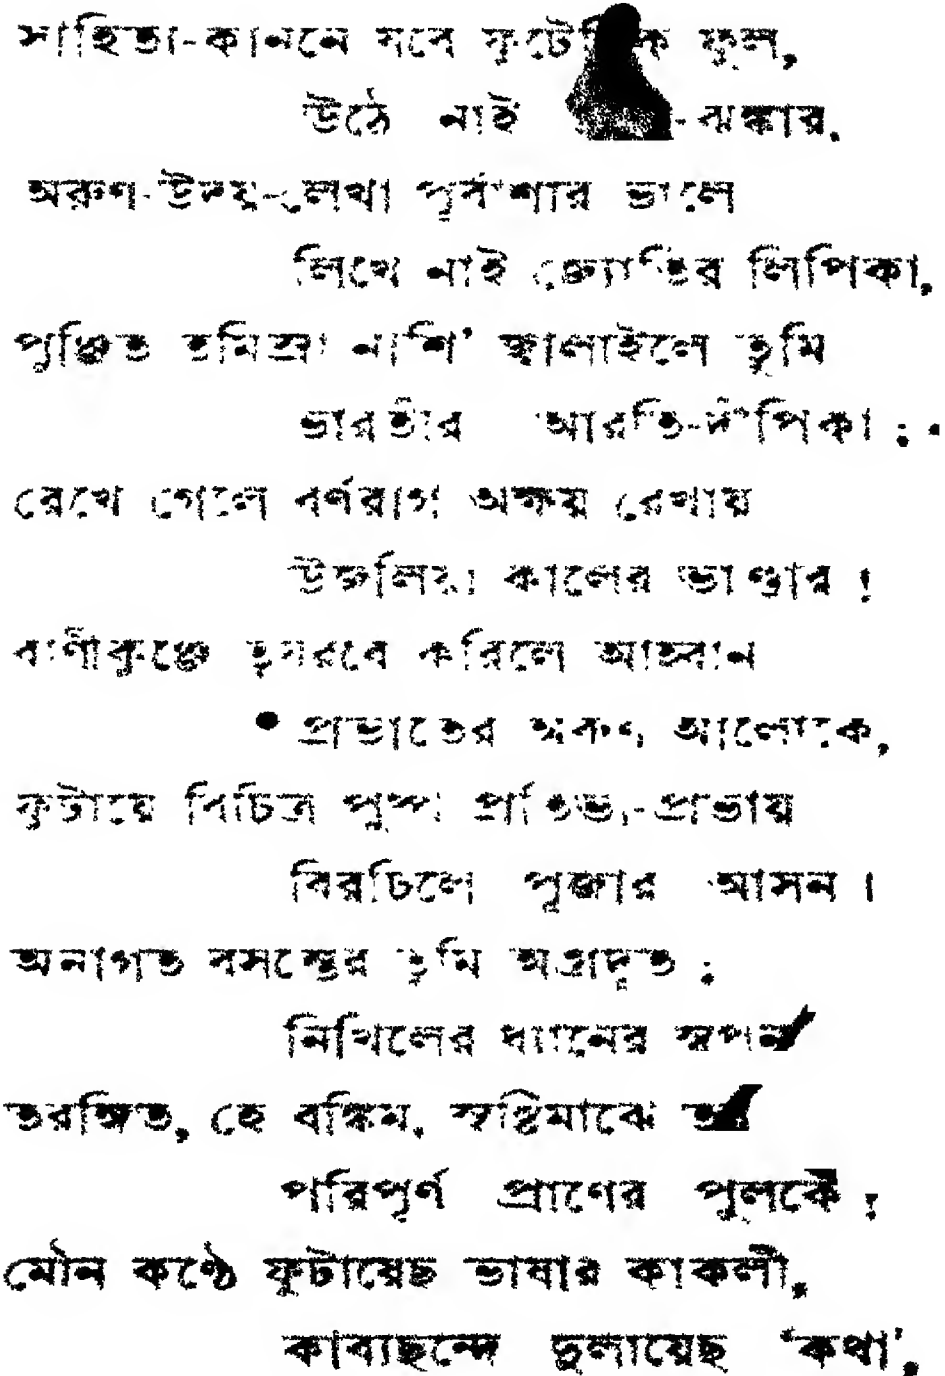 সাহিত্য-কাননে যবে ফুটে ফুল,
উঠে নাই -ঝঙ্কার,
অরুণ-উদয়-লেখা পূর্বাশার ভালে
লিখে নাই জ্যোতির লিপিকা,
পুঞ্জিত তমিস্রা নাশি' জ্বালাইলে তুমি
ভারতীর আরতি-দীপিকা ;
রেখে গেলে বর্ণরাগ অক্ষয় রেখায়
উজলিয়া কালের ভাণ্ডার !
বাণীকুঞ্জে করিলে আহ্বান
প্রভাতের অরুণ আলোকে,
ফুটায়ে বিচিত্র পুষ্প প্রতিভা-প্রভায়
বিরচিলে পূজার আসন ।
অনাগত বসন্তের তুমি অগ্রদূত ;
নিখিলের ধ্যানের স্বপন
তরঙ্গিত, হে বঙ্কিম, সৃষ্টিমাঝে তব
পরিপূর্ণ প্রাণের পুলকে ;
মৌন কণ্ঠে ফুটায়েছ ভাষার কাকলী,
কাব্যছন্দে দুলায়েছ 'কথা',